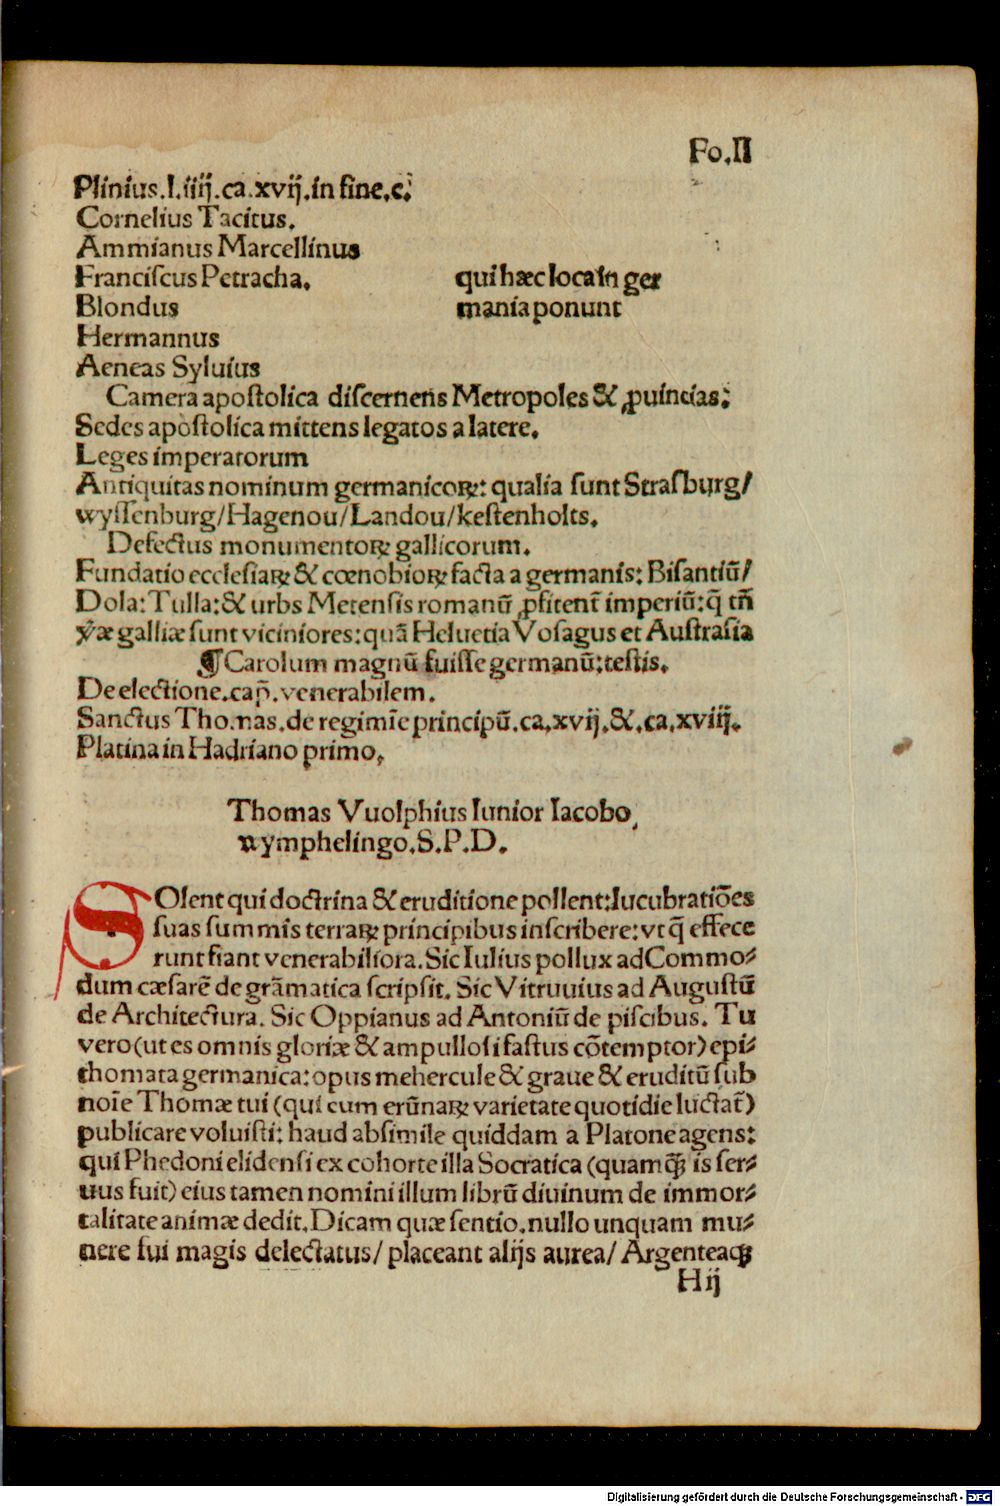 Fo.II
Plinius.l.iiij.ca.xvij.in fine.c.
Cornelius Tacitus.
Ammianus Marcellinus
Franciſcus Petracha. qui hæc loca in ger
Blondus mania ponunt
Hermannus
Aeneas Syluius
Camera apoſtolica diſcernens Metropoles & ꝓuincias:
Sedes apoſtolica mittens legatos a latere.
Leges imperatorum
Antiquitas nominum germanicoꝝ: qualia ſunt Straſburg/
wyſſenburg/Hagenou/Landou/keſtenholts.
Defectus monumentoꝝ gallicorum.
Fundatio eccleſiaꝝ & cœnobioꝝ facta a germanis: Biſantiū/
Dola: Tulla: & urbs Metenſis romanū ꝓfitent̄ imperiū: q̄ tn̄
v̄æ galliæ ſunt viciniores: quā Heluetia Voſagus et Auſtraſia
¶Carolum magnū fuiſſe germanū: teſtis.
De electione.cap̄.venerabilem.
Sanctus Thomas.de regimīe principū.ca.xvij.&.ca.xviij.
Platina in Hadriano primo,
Thomas Vuolphius Iunior Iacobo
vvymphelingo.S.P.D.
SOlent qui doctrina & eruditione pollent: lucubratiōes
ſuas ſummis terraꝝ principibus inſcribere: vt q̄ effece
runt fiant venerabiliora. Sic Iulius pollux ad Commo⸗
dum cæſarē de grāmatica ſcripſit. Sic Vitruuius ad Auguſtū
de Architectura. Sic Oppianus ad Antoniū de piſcibus. Tu
vero (ut es omnis gloriæ & ampulloſi faſtus cōtemptor) epi⸗
thomata germanica: opus mehercule & graue & eruditū ſub
noīe Thomæ tui (qui cum erūnaꝝ varietate quotidie luctat̄)
publicare voluiſti: haud abſimile quiddam a Platone agens:
qui Phedoni elidenſi ex cohorte illa Socratica (quamꝙ̄ is ſer⸗
uus fuit) eius tamen nomini illum librū diuinum de immor⸗
talitate animæ dedit. Dicam quæ ſentio. nullo unquam mu⸗
nere ſui magis delectatus/ placeant alijs aurea/ Argenteaꝙ
Hij
Digitalisierung gefördert durch die Deutsche Forschungsgemeinschaft - DFG